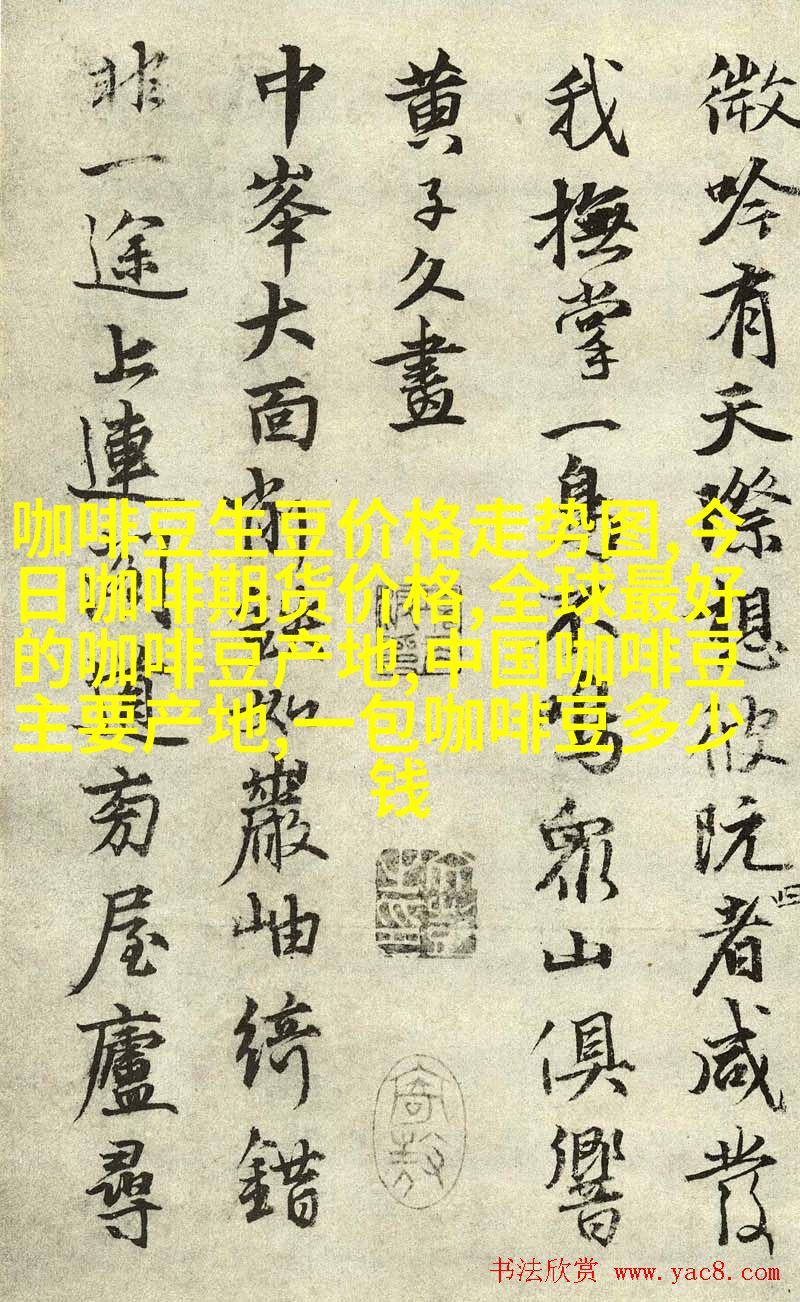 微吟有天際想彼阮者咸發
我撫掌一身不眾山俱響
黃子久畫
中峯大面巖岫綺錯
非一途上連旁屋廬尋
咖啡豆生豆价格走势图,今
日咖啡期货价格,全球最好
的咖啡豆产地,中国咖啡豆
主要产地,一包咖啡豆多少
钱
书法欣赏 www.yac8.com